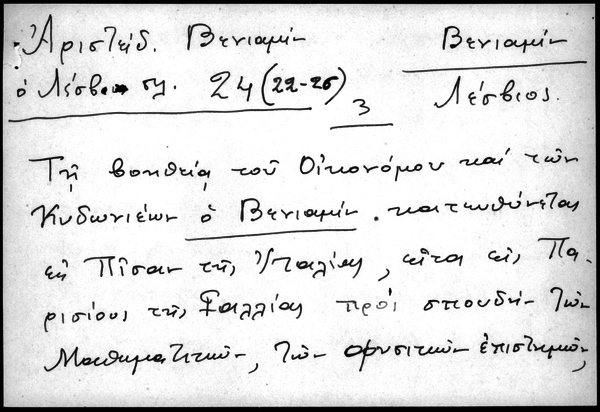 Ἀριστείδ. Βενιαμίν
Βενιαμίν
ὁ Λέσβιος σλ. 24 (22-25)
3
Λέσβιος.
Τῇ βοηθείᾳ τοῦ Οἰκονόμου καί τῶν
Κυδωνιέων ὁ Βενιαμίν. κατευθύνεται
εἰς Πῖσαν τῆς Ἰταλίας, εἶτα εἰς Πα-
ρισίους τῆς Γαλλίας πρός σπουδήν τῶν
Μαθηματικῶν, τῶν φυσικῶν ἐπιστημῶν,